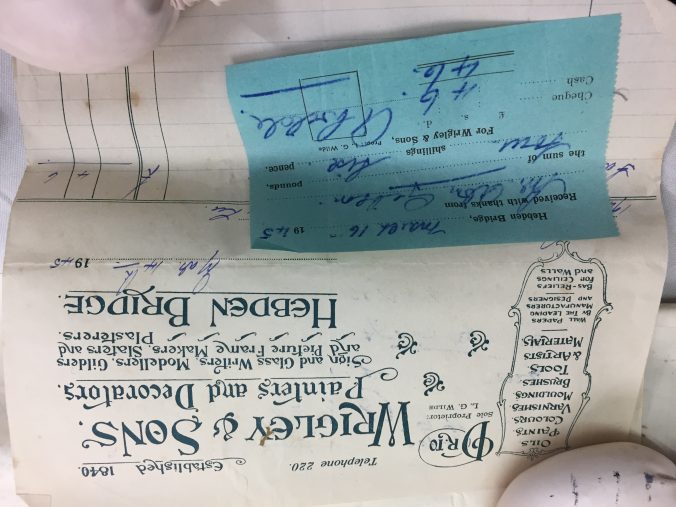 Established 1840.
Telephone 220.
WRIGLEY & SONS.
Dr to
Sole Proprietor:
L. G. WILDE
Painters and Decorators.
Sign and Glass Writers, Gilders
and Picture Frame Makers, Slaters and
Modellers, Plasterers.
HEBDEN BRIDGE.
OILS
PAINTS
COLOURS.
VARNISHES
MOULDINGS
BRUSHES
TOOLS
& ARTISTS
MATERIALS
WALL PAPERS
BY THE LEADING
MANUFACTURERS
AND DESIGNERS
BAS-RELIEFS
FOR CEILINGS
AND WALLS
Feb. 14th 1945
Hebden Bridge, March 16 1945
Received with thanks from
The
pounds,
the sum of Four shillings Six pence.
For Wrigley & Sons,
Propr: L. G. Wilde
£ s. d.
Cheque 4 6
Cash
4 6